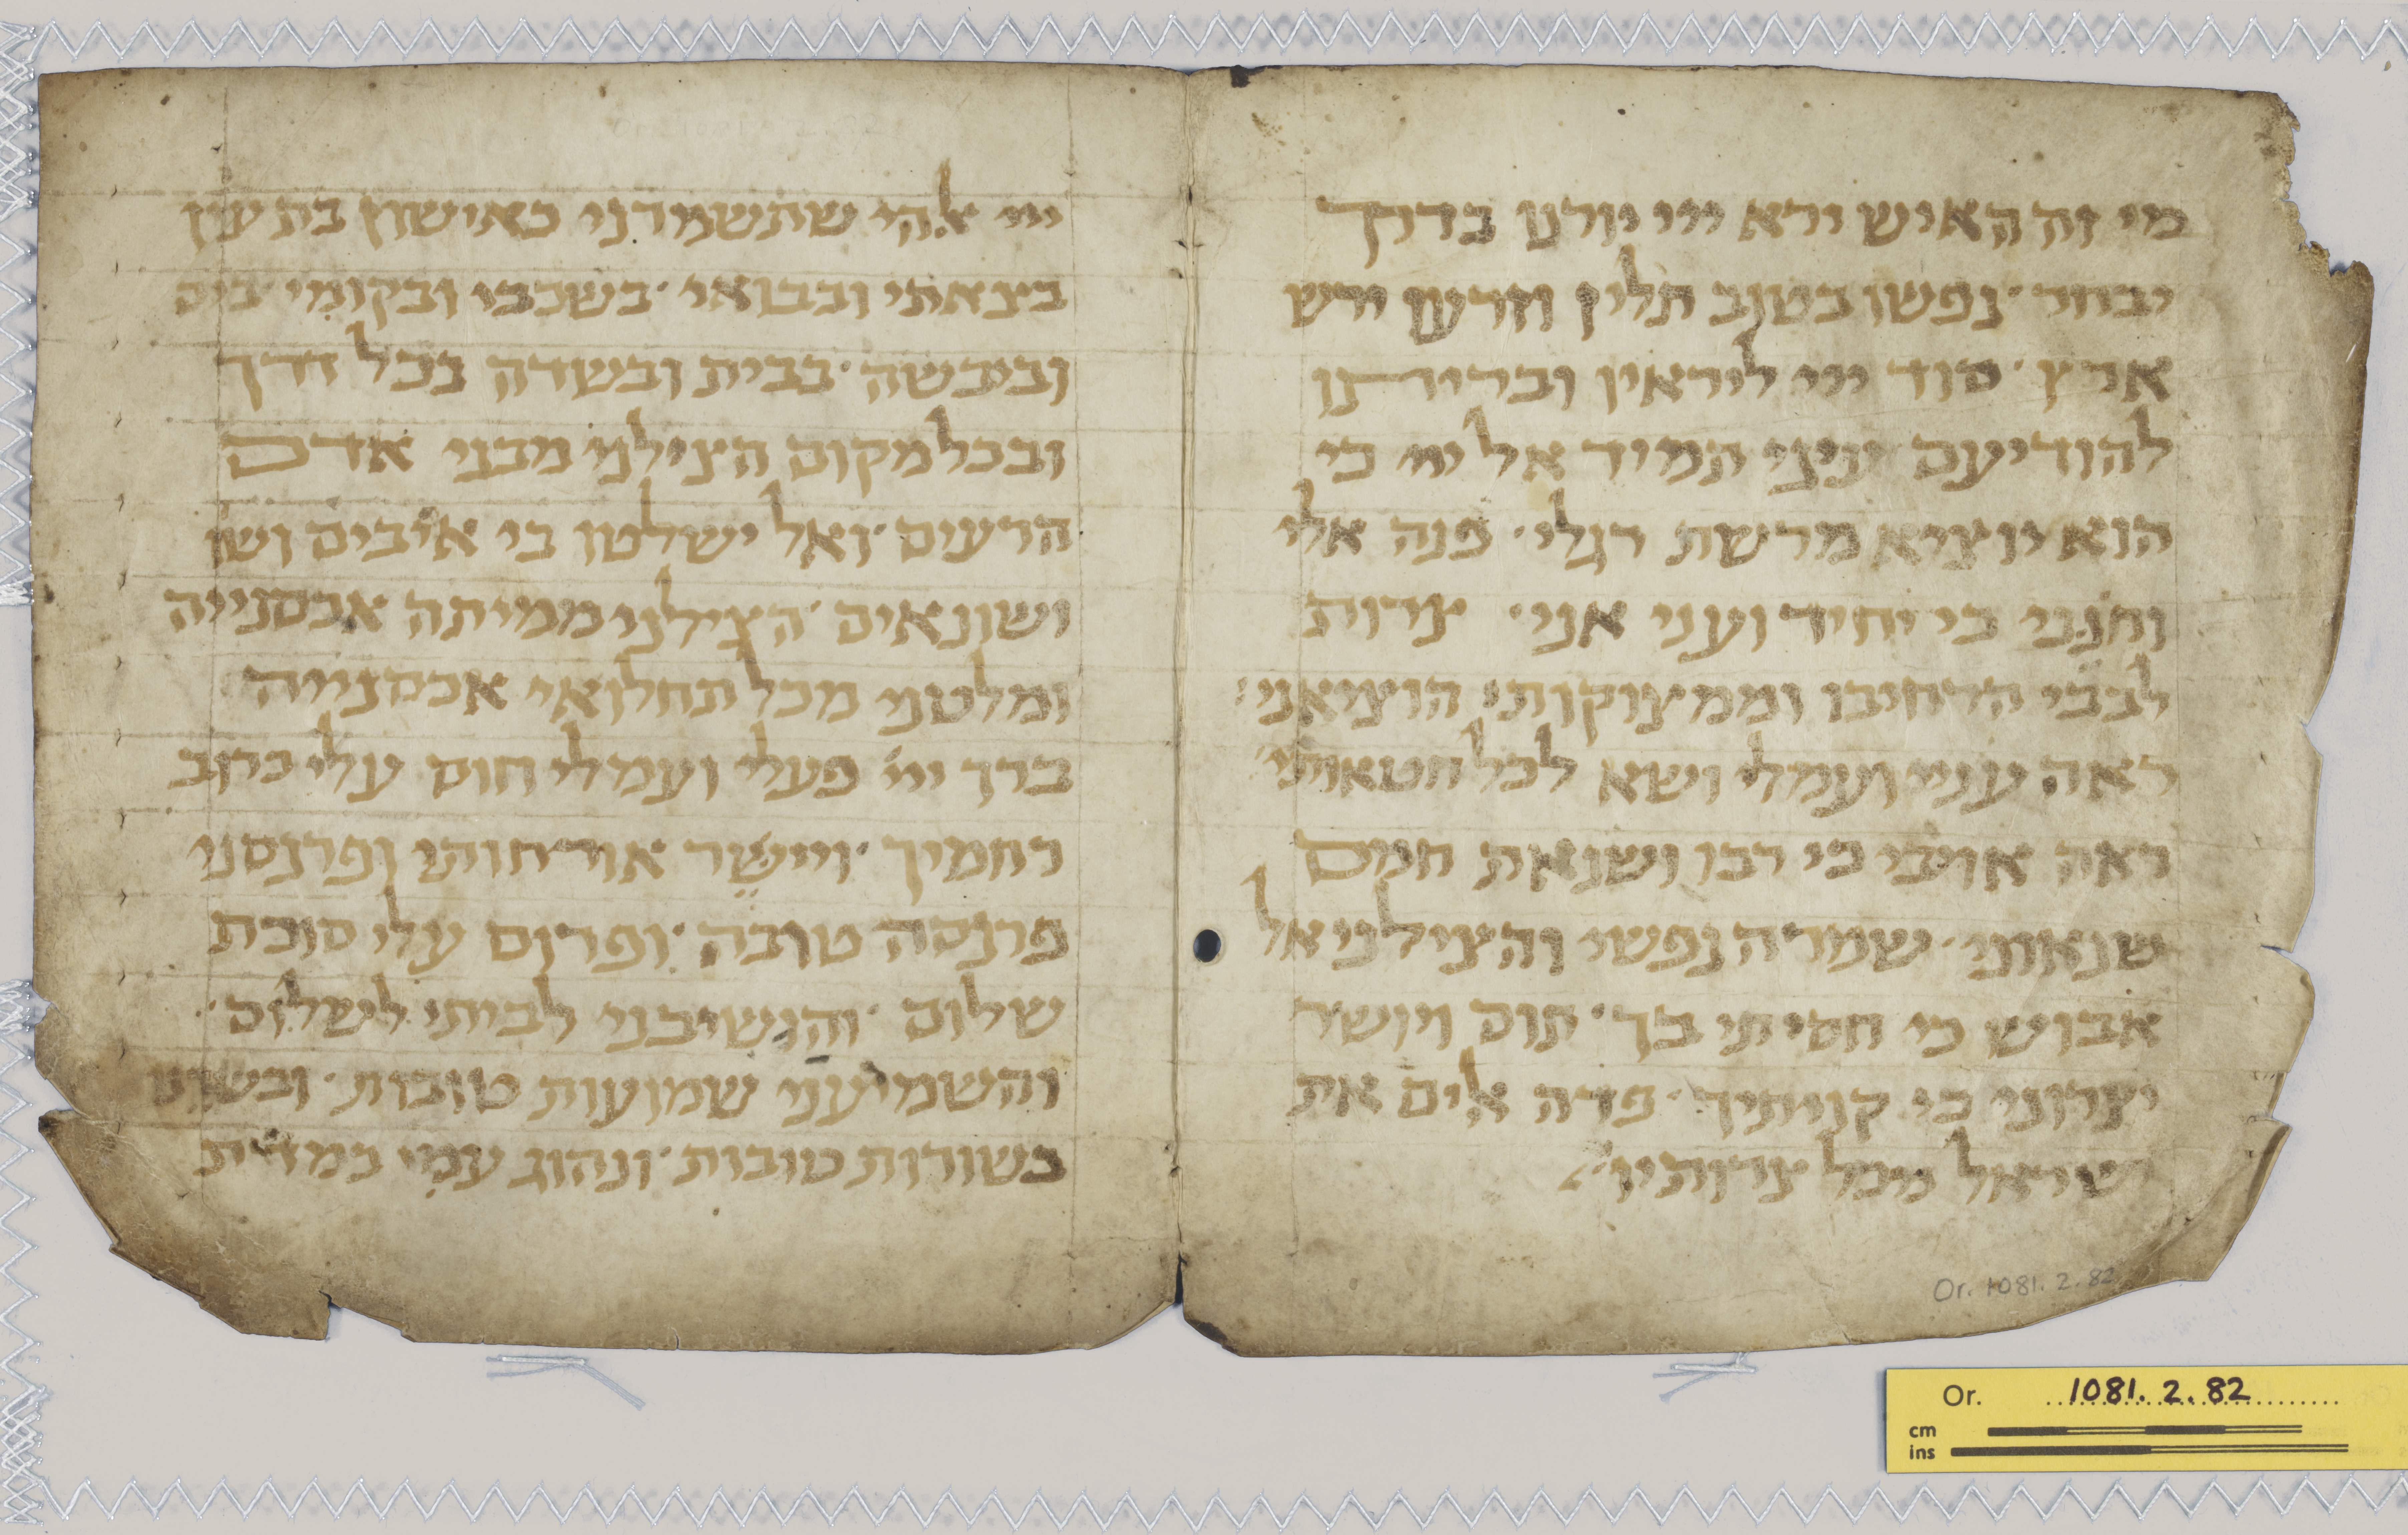 מי זה האיש ירא ייי יורנו בדרך
יבחר · נפשו בטוב תלין וזרעו ירש
ארץ · סוד ייי ליראיו ובריתו
להודיעם עיני תמיד אל ייי כי
הוא יוציא מרשת רגלי · פנה אלי
וחנני כי יחיד ועני אני · צרות
לבבי הרחיבו וממצוקותי הוציאני
ראה עניי ועמלי ושא לכל חטאותי
ראה אויבי כי רבו ושנאת חמס
שנאוני · שמרה נפשי והצילני אל
אבוש כי חסיתי בך · תום ויושר
יצרוני כי קויתיך · פדה אלים את
ישראל מכל צרותיו
ייי אלהי שתשמרני כאישון בת עין
בצאתי ובבואי · בשכבי ובקומי בים
וביבשה · בבית ובשדה בכל דרך
ובכל מקום הצילני מבני אדם
הרעים · ואל ישלטו בי אויבים ושו
ושונאים · הצילני ממיתה אכסנייה
ומלטני מכל תחלואי אכסנייה
ברך ייי פעלי ועמלי חוס עלי כרוב
רחמיך · ויישר אורחותי ופרנסני
פרנסה טובה · ופרוס עלי סוכת
שלום · והשיבני לביתי לשלום ·
והשמיעני שמועות טובות · ובשרני
בשורות טובות · ונהוג עמי במדת
Or. 1081. 2. 82
Or. 1081. 2. 82
cm
ins